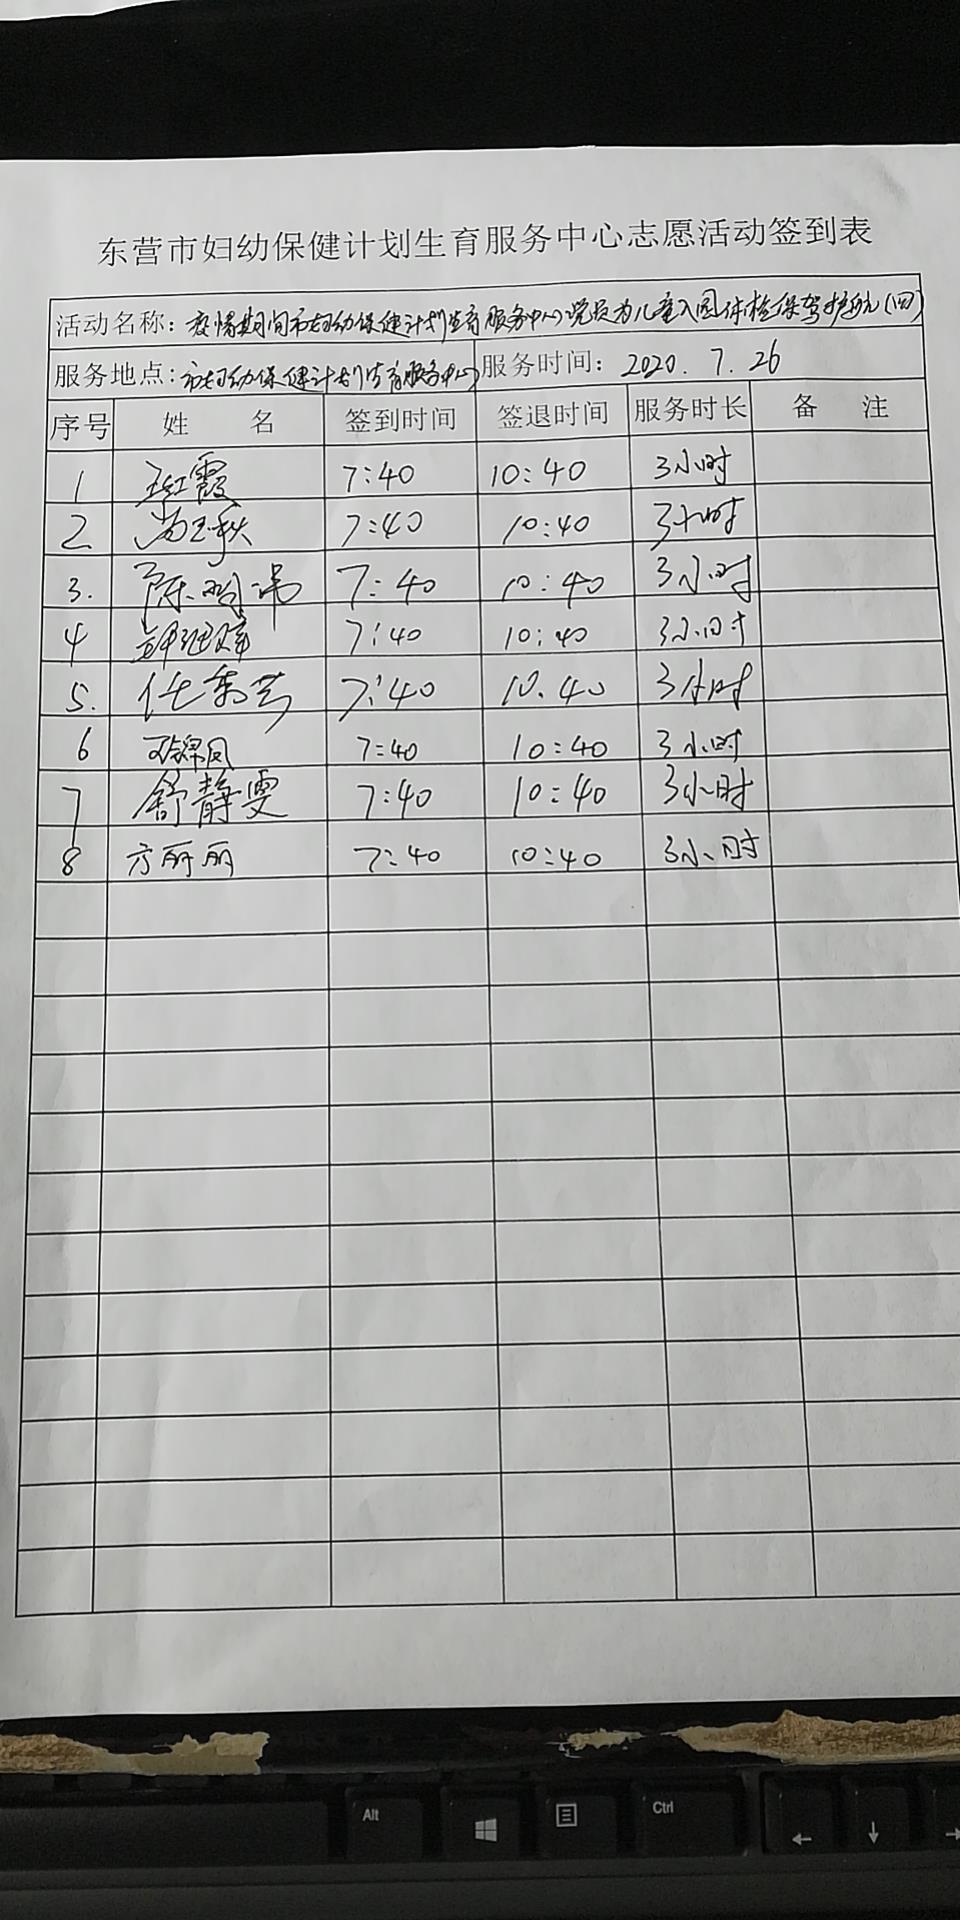 东营市妇幼保健计划生育服务中心志愿活动签到表
活动名称：疫情期间市妇幼保健计划生育服务中心党员为儿童入园体检保驾护航(四)
服务地点：市妇幼保健计划生育服务中心 服务时间：2020.7.26
序号 姓 名 签到时间 签退时间 服务时长 备 注
1 王红霞 7:40 10:40 3小时
2 7:40 10:40 3小时
3. 陈 7:40 10:40 3小时
4 7:40 10:40 3小时
5. 任秀芳 7:40 10.40 3小时
6 7:40 10:40 3小时
7 舒静雯 7:40 10:40 3小时
8 方丽丽 7:40 10:40 3小时
Alt
Ctrl